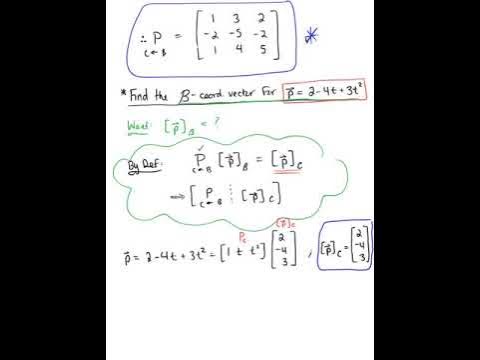 ∴ P C←B = [ 1 3 2
-2 -5 -2
1 4 5 ] *
* Find the β-coord. vector for p⃗ = 2-4t+3t²
Want: [p⃗]_B = ?
By Def: P C←B [p⃗]_B = [p⃗]_C
⟹ [ P C←B ⋮ [p⃗]_C ]
P_C [p⃗]_C
p⃗ = 2-4t+3t² = [1 t t²] [ 2
-4
3 ] , [p⃗]_C = [ 2
-4
3 ]